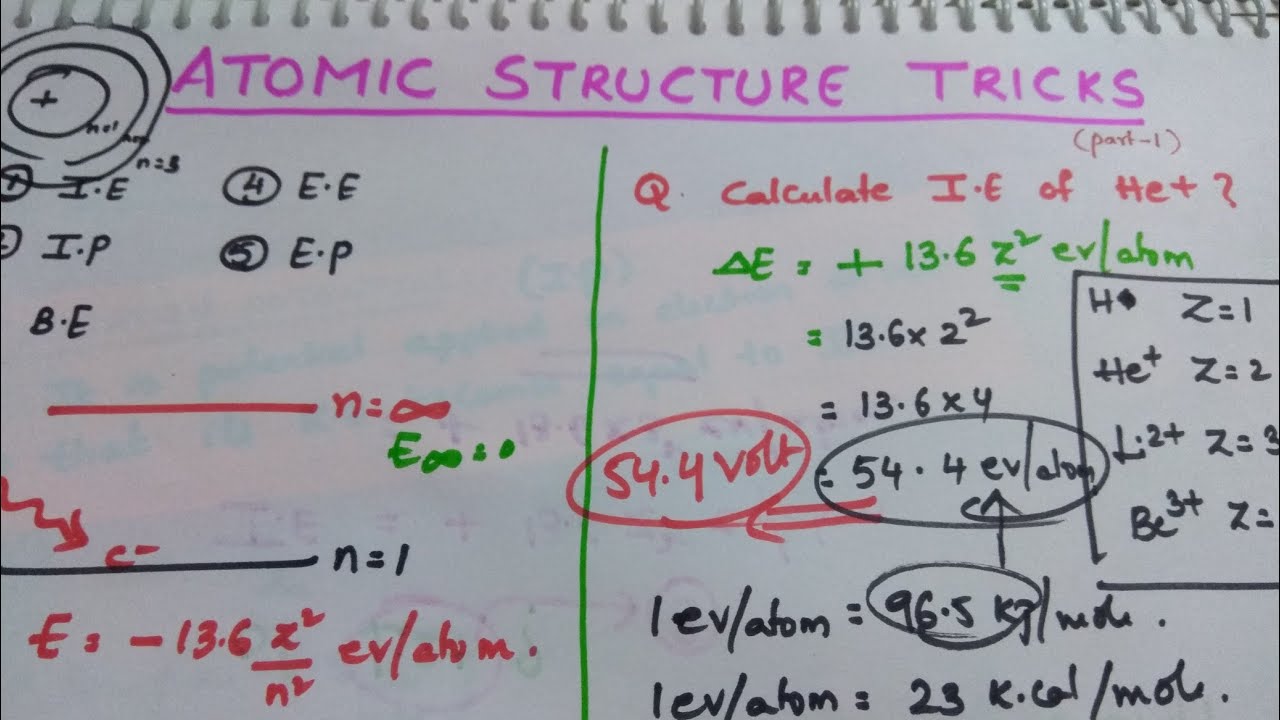 ATOMIC STRUCTURE TRICKS
(part-1)
+
n=3
I.E
④ E.E
I.P
⑤ E.P
B.E
n=∞
E∞=0
e-
n=1
E = -13.6 z²/n² ev/atom.
Q. Calculate I.E of He+ ?
ΔE = + 13.6 z² ev/atom
= 13.6 x 2²
= 13.6 x 4
= 54.4 ev/atom
54.4 volt
H Z=1
He+ Z=2
Li2+ Z=3
Be3+ Z=
1ev/atom = 96.5 kJ/mole.
1ev/atom = 23 K.cal/mole.